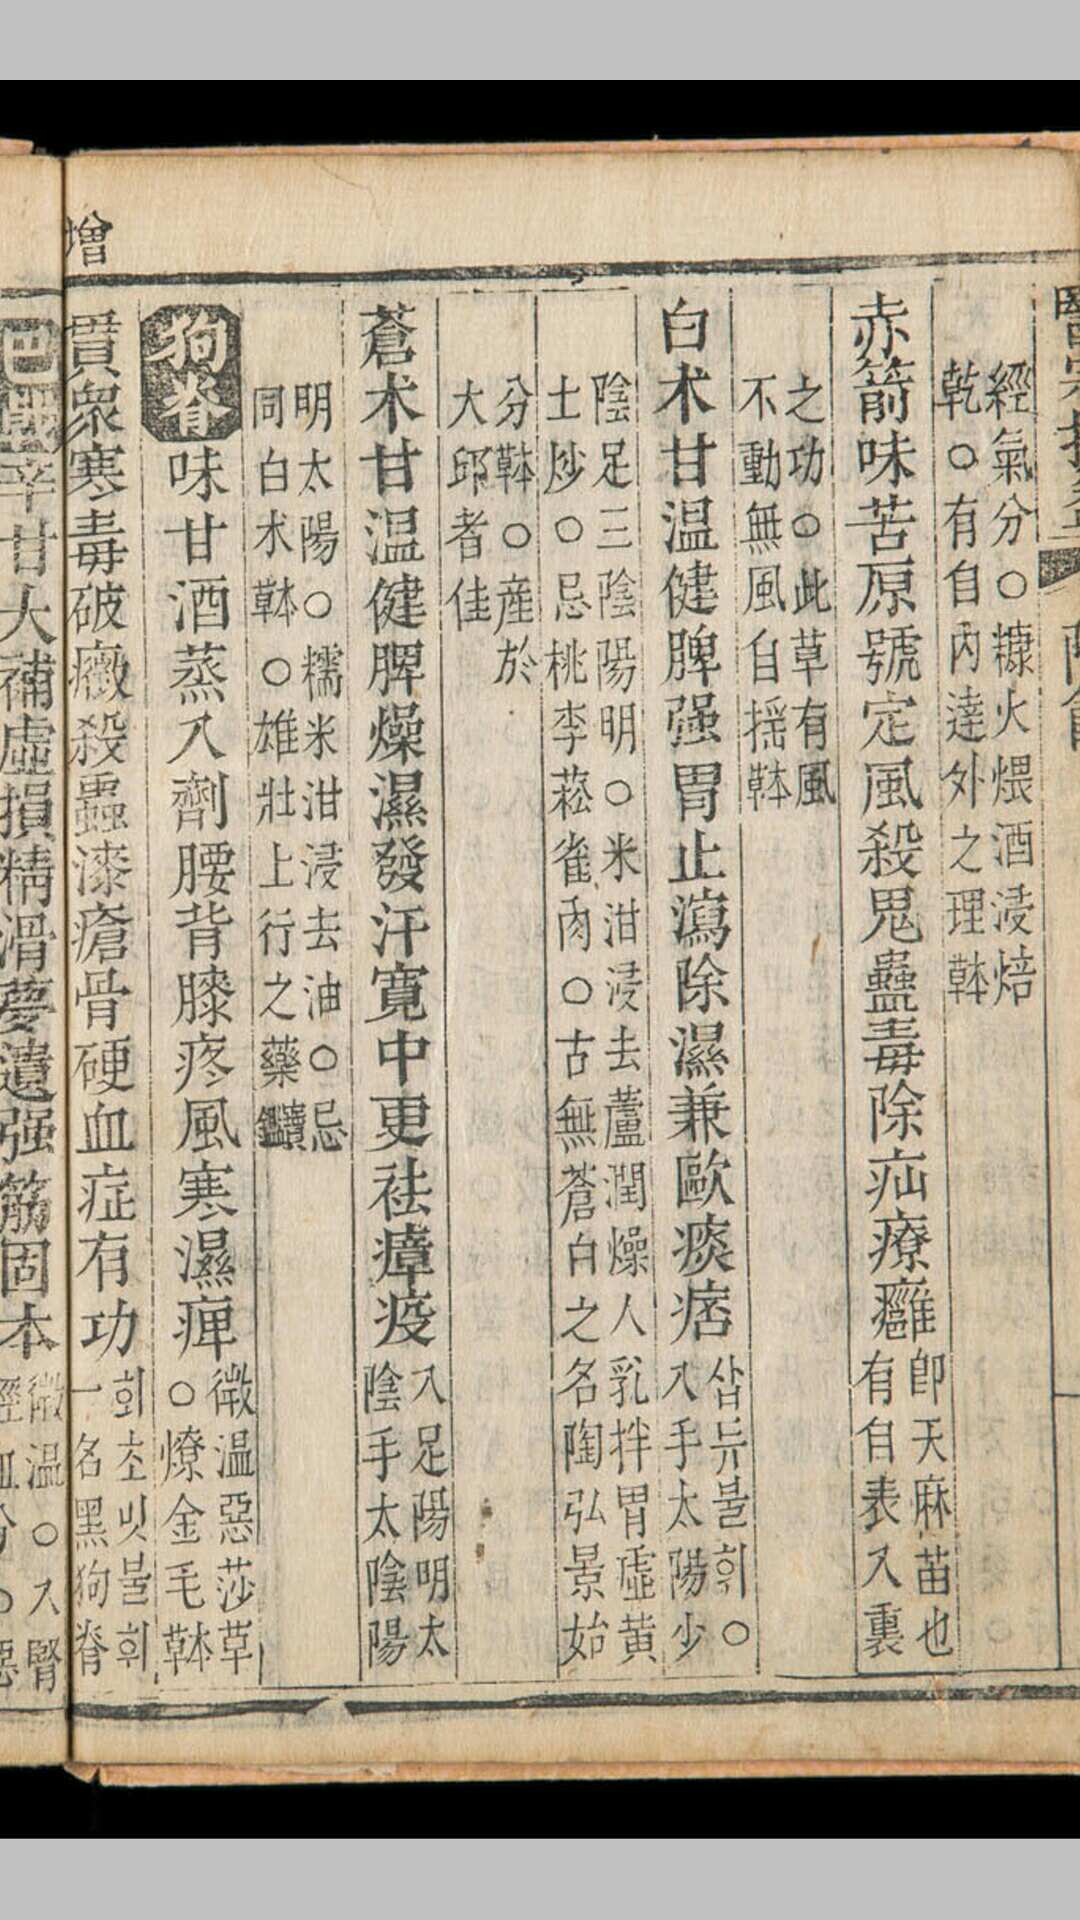 經氣分○糠火煨酒浸焙
乾○有自內達外之理䪺
赤箭味苦原號定風殺鬼蠱毒除疝療癰
卽天麻苗也
有自表入裏
之功○此草有風
不動無風自搖
白朮甘温健脾强胃止瀉除濕兼歐痰痞
삽듀불휘○
入手太陽少
陰足三陰陽明○米泔浸去蘆潤燥人乳拌胃虛黃
土炒○忌桃李菘雀肉○古無蒼白之名陶弘景始
分 ○産於
大邱者佳
蒼朮甘温健脾燥濕發汗寬中更祛瘴疫
入足陽明太
陰手太陰陽
明太陽○糯米泔浸去油○忌
同白朮 ○雄壯上行之藥
狗脊味甘酒蒸入劑腰背膝疼風寒濕痺
微温惡莎草
○燎金毛
增
貫衆寒毒破癥殺蟲漆瘡骨硬血症有功
회초밋불휘
一名黑狗脊
巴戟辛甘大補虛損精滑夢遺强筋固本
微温○入腎
經血分○惡